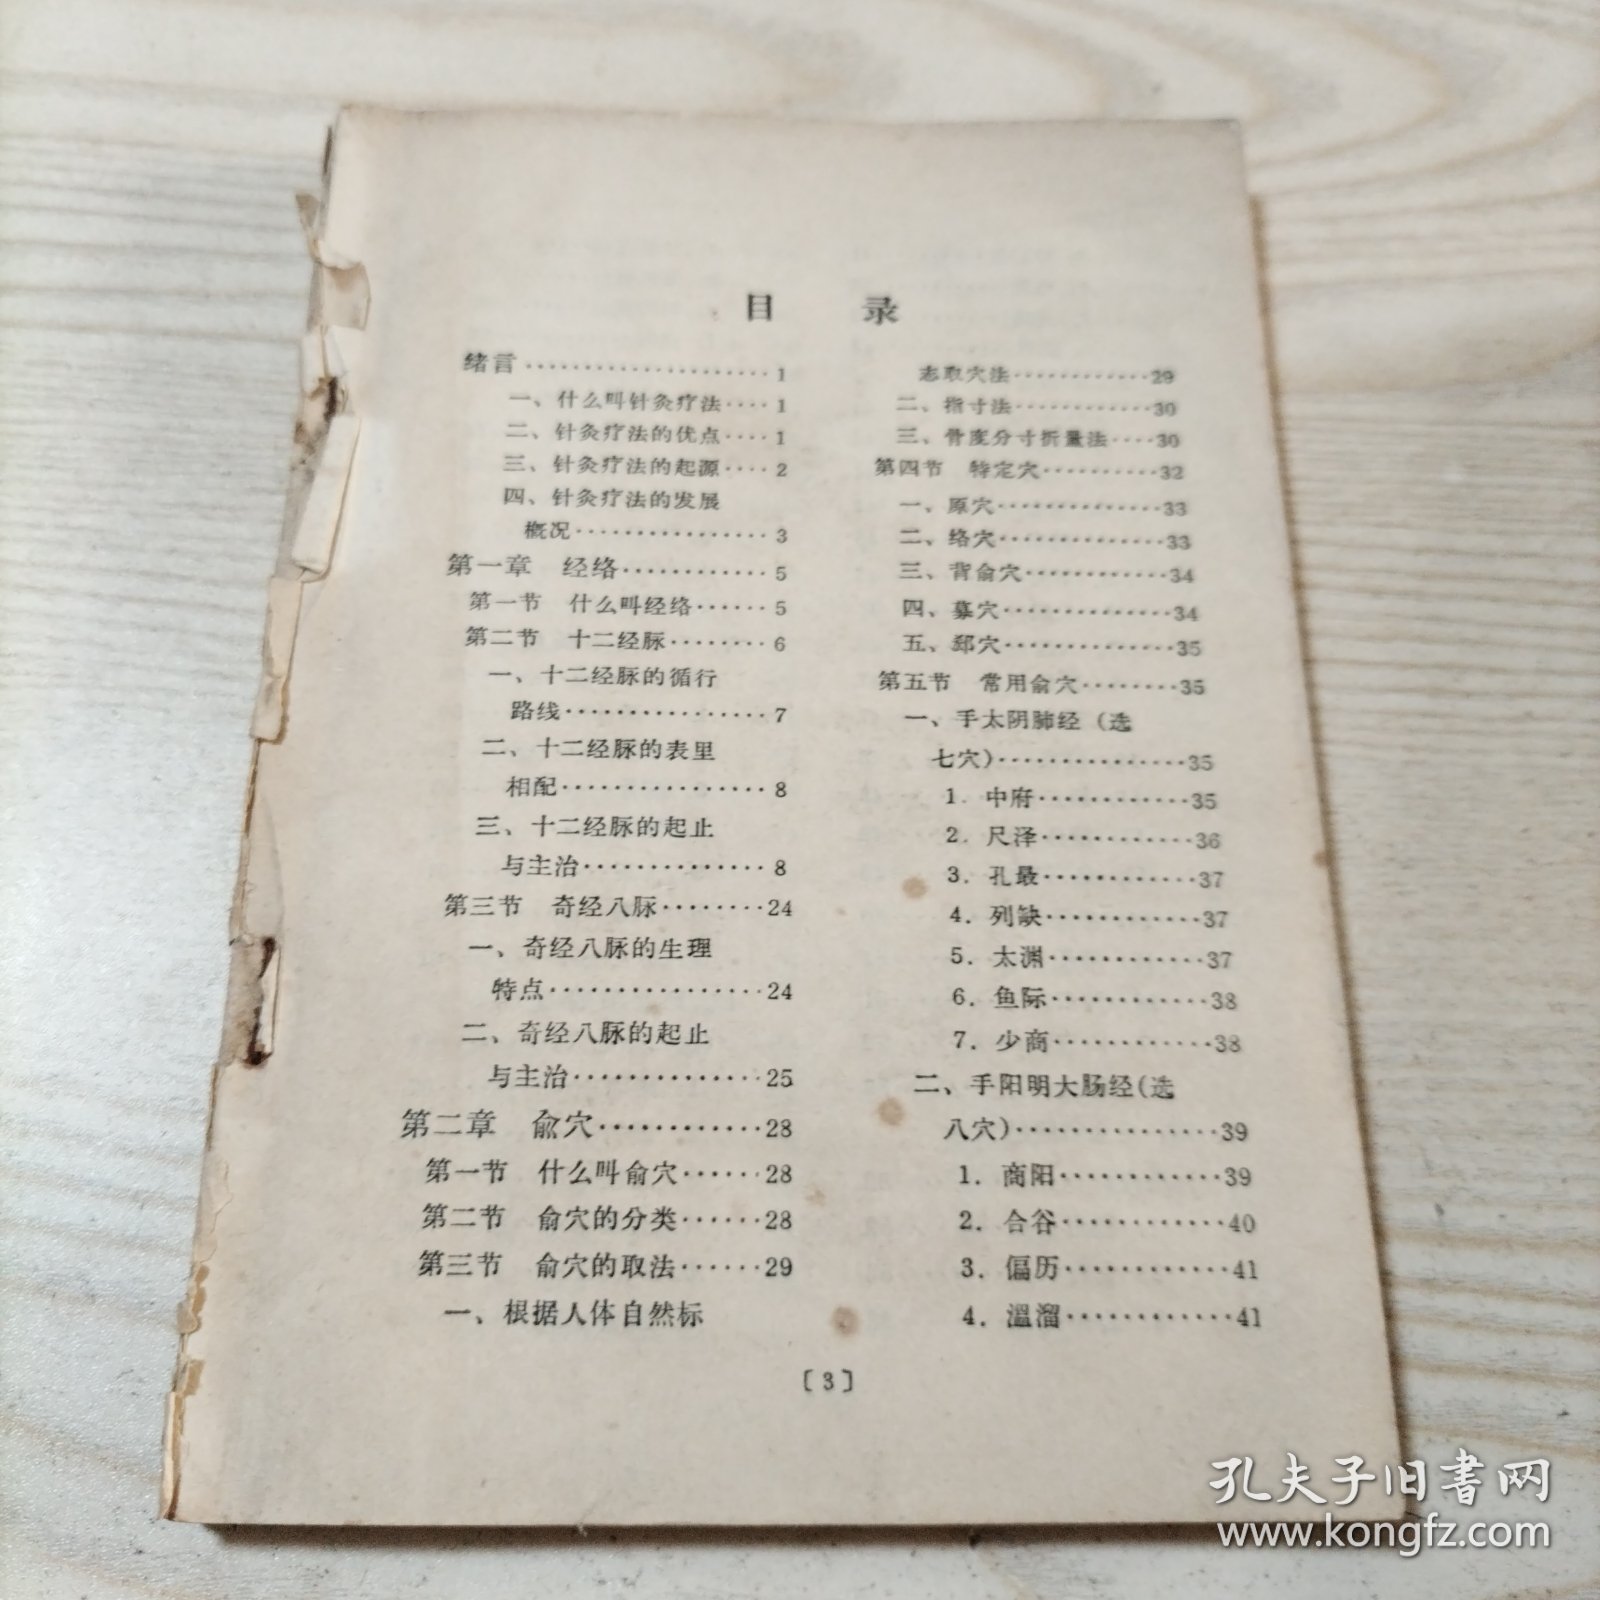 目 录
绪言·····················1
一、什么叫针灸疗法····1
二、针灸疗法的优点····1
三、针灸疗法的起源····2
四、针灸疗法的发展
概况················3
第一章 经络············5
第一节 什么叫经络······5
第二节 十二经脉········6
一、十二经脉的循行
路线················7
二、十二经脉的表里
相配················8
三、十二经脉的起止
与主治··············8
第三节 奇经八脉········24
一、奇经八脉的生理
特点················24
二、奇经八脉的起止
与主治··············25
第二章 俞穴············28
第一节 什么叫俞穴······28
第二节 俞穴的分类······28
第三节 俞穴的取法······29
一、根据人体自然标
志取穴法············29
二、指寸法············30
三、骨度分寸折量法····30
第四节 特定穴··········32
一、原穴··············33
二、络穴··············33
三、背俞穴············34
四、募穴··············34
五、郄穴··············35
第五节 常用俞穴········35
一、手太阴肺经（选
七穴）················35
1．中府············35
2．尺泽············36
3．孔最············37
4．列缺············37
5．太渊············37
6．鱼际············38
7．少商············38
二、手阳明大肠经(选
八穴)················39
1．商阳············39
2．合谷············40
3．偏历············41
4．温溜············41
〔3〕
孔夫子旧书网
www.kongfz.com